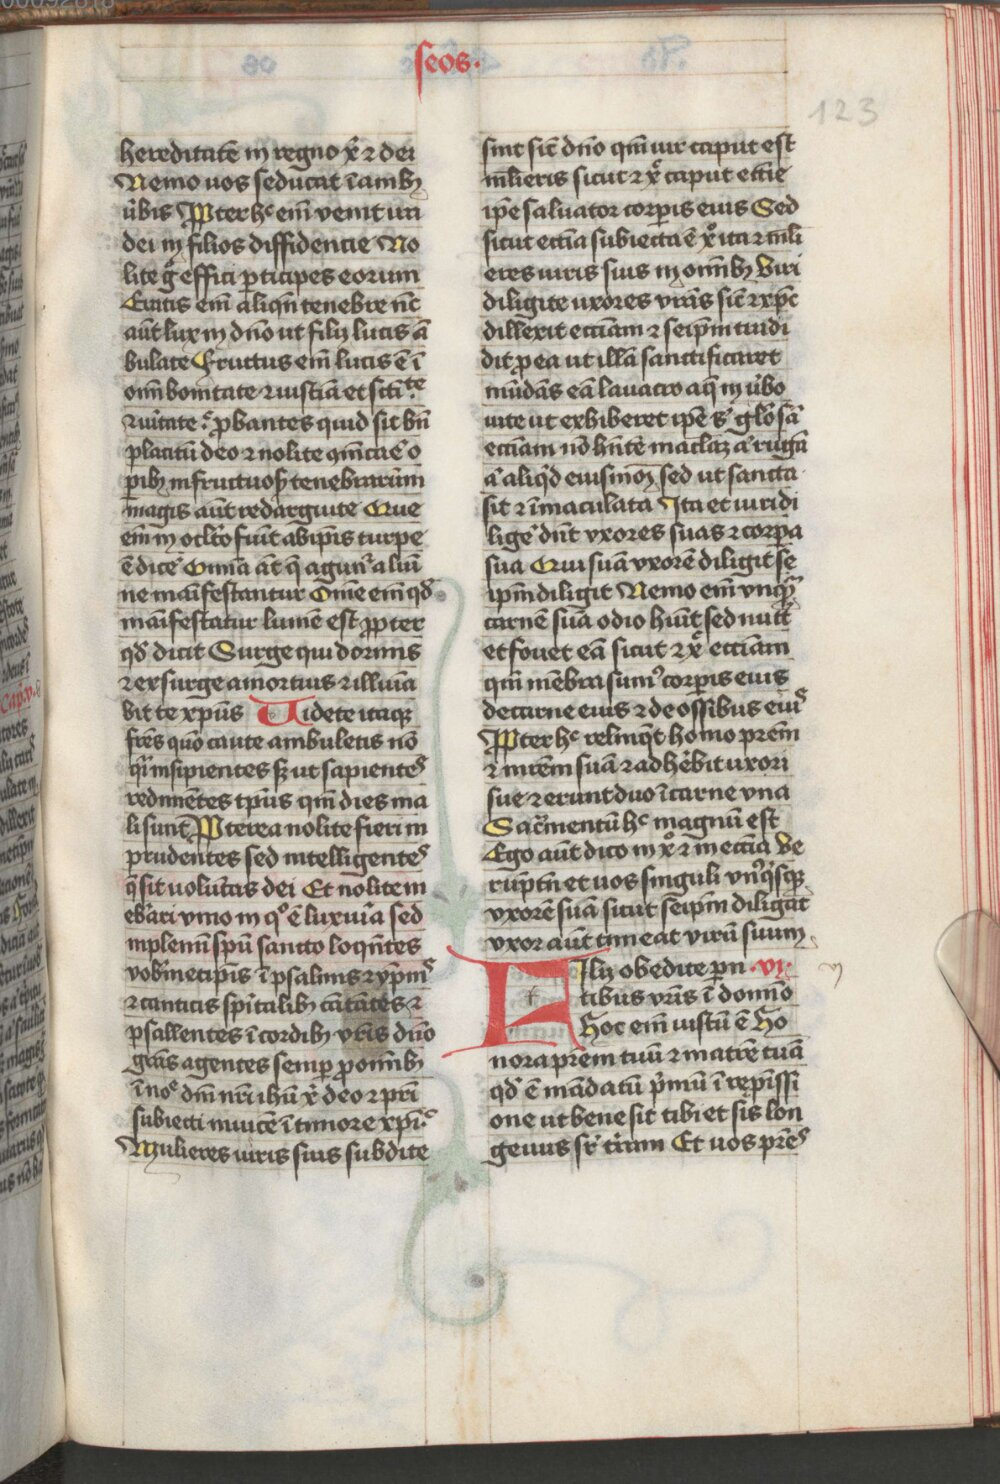 seos.
123
hereditatē in regno xp̄i ⁊ dei
Nemo uos seducat ī anibꝫ
ūbis Ꝓpter hᶜ eni᷒ venit ira
dei in filios diffidencie No
lite gͦ effici ꝑticipes eorum
Eratis em̄ aliqn̄ tenebre nc̄
aūt lux in dn̄o ut filij lucis ā
bulate Fructus em̄ lucis ē ī
om̄i bonitate ⁊ iusticia et scīte
⁊ uītate ꝓbantes quid sit bn̄
placitū deo ⁊ nolite q̄mcāe o
ꝑibꝫ infructuosꝭ tenebrarum
magis aūt redarguite Que
em̄ in occlto fiūt ab ip̄is turpe
ē dicē Omīa aūt q̄ agunt᷑ a lumi
ne manifestantur Om̄e em̄ qd̄
manifestatur lumē est ꝓpter
qd̄ dicit Surge qui dormis
⁊ exsurge a mortuis ⁊ illumīa
bit te xp̄us Videte itaqꝫ
frēs quō caute ambuletis nō
q̄si insipientes sꝫ ut sapientes
redimētes tp̄us qm̄ dies ma
li sunt Ꝓpterea nolite fieri in
prudentes sed intelligentes
q̄ sit uolūtas dei Et nolite in
ebriari vino in qͦ ē luxuria sed
implemī spū sancto loqn̄tes
vobīmetip̄is ī psalmis ⁊ ympnis
⁊ canticis spūalibꝫ cātātes ⁊
psallentes ī cordibꝫ vr̄is dn̄o
gr̄as agentes semꝑ ꝓ om̄ibꝫ
ī noīe dnī nr̄i ihū xp̄i deo ⁊ pr̄i
subiecti inuicē ī timore xp̄i
Mulieres uiris suis subdite
sint sic̄ dn̄o qm̄ uir caput est
ml̄ieris sicut ⁊ xp̄c caput ecc̄ie
ip̄e saluator corꝑis eius Sed
sicut ecc̄ia subiecta ē xp̄o ita ⁊ mli
eres uiris suis in om̄ibꝫ Viri
diligite uxores vr̄as sic̄ ⁊ xp̄c
dillexit ecc̄iam ⁊ seip̄m tradi
dit ꝓ ea ut illā sanctificaret
mūdās eā lauacro aq̄ in ūbo
uite ut exhiberet ip̄e sⁱ glōsā
ecc̄iam nō hn̄tē maclāꝫ aᵗ rugā
aᵗ aliqͥd eiusmōi sed ut sancta
sit ⁊ īmaculata Ita et uiri di
ligē dn̄t vxores suas ⁊ corꝑa
sua Qui suā vxorē diligit se
ip̄m diligit Nemo em̄ vnqᷓ
carnē suā odio huīt sed nut̄t
et fouet eā sicut ⁊ xp̄c ecc̄iam
qm̄ mēbra sumꝰ corꝑis eius
de carne eius ⁊ de ossibus eius
Ꝓpter hᶜ relinqͥt homo prēm
⁊ mrēm suā ⁊ adhēbit uxori
sue ⁊ erunt duo ī carne vna
Sacrm̄entū hᶜ magnū est
Ego aūt dico in xp̄o ⁊ in ecc̄ia Ve
rūptn̄ et uos singuli vnꝰqͥsqꝫ
vxorē suā sicut seip̄m diligat
vxor aūt timeat virū suum
Filij obedite ꝑn .vi.
tibus vr̄is ī domīo
Hoc em̄ iustū ē Ho
nora prēm tuū ⁊ matrē tuā
qd̄ ē mādatū p̄mū ī repīssi
one ut bene sit tibi et sis lon
geuus sr̄ tr̄ram Et uos prēs